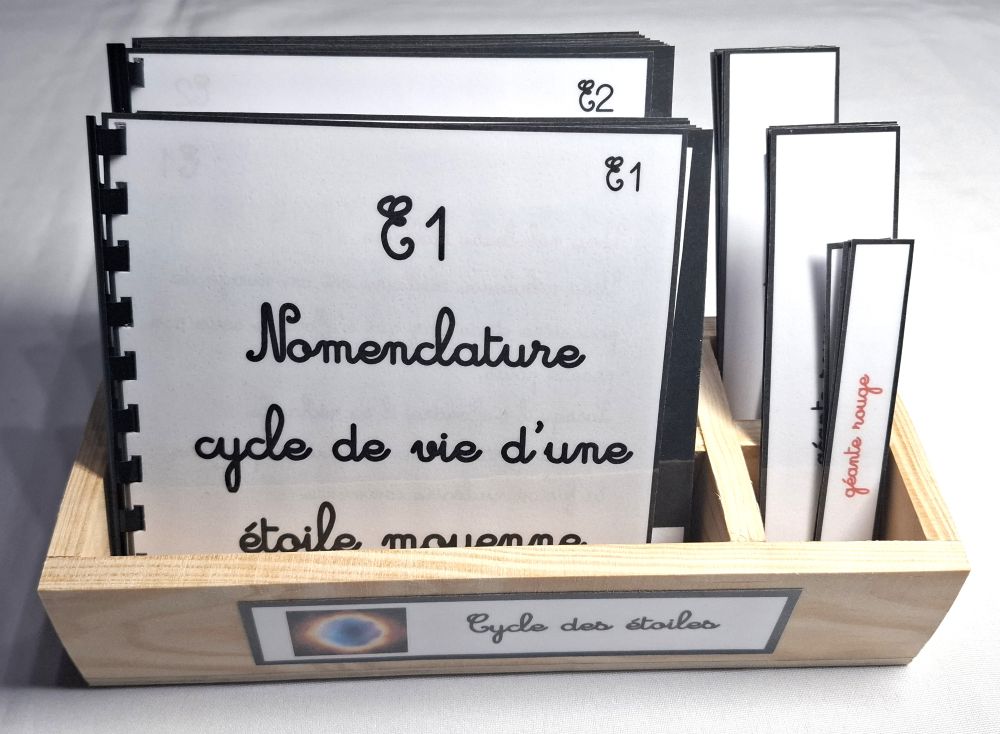 E2
E1
E1
Nomenclature
cycle de vie d'une
étoile moyenne
géante rouge
Cycle des étoiles